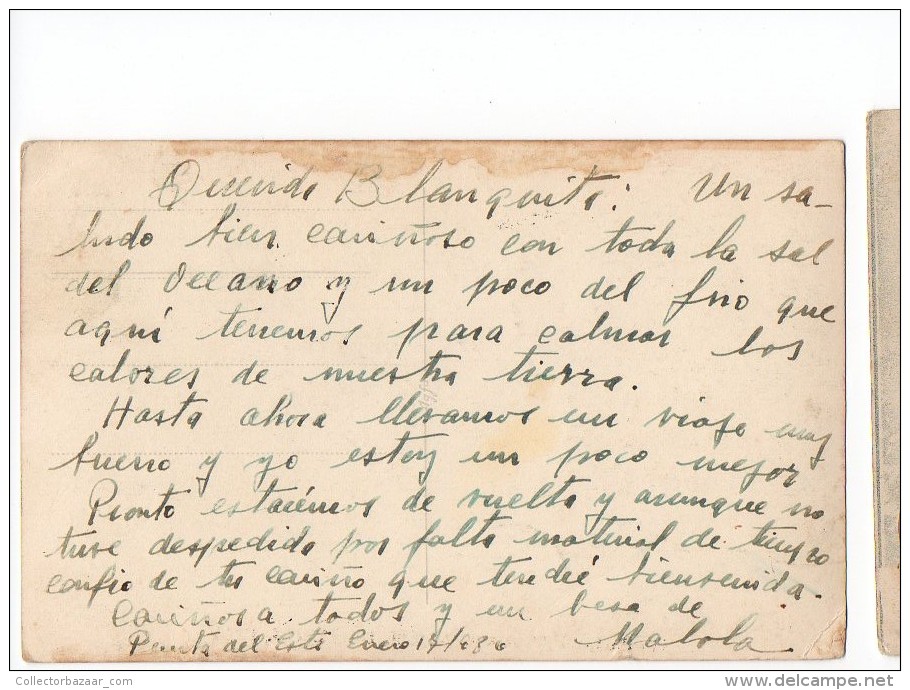 Querida Blanquita: Un sa-
ludo bien cariñoso con toda la sal
del Oceano y un poco del frio que
aqui tenemos para calmar los
calores de nuestra tierra.
Hasta ahora llevamos un viaje muy
bueno y yo estoy un poco mejor
Pronto estarémos de vuelta y aunque no
tuve despedida por falta material de tiempo
confio de tu cariño que tendré bienvenida.
Cariños a todos y un beso de
Punta del Este Enero 17/
Malola
© CollectorBazaar.com
www.delcampe.net